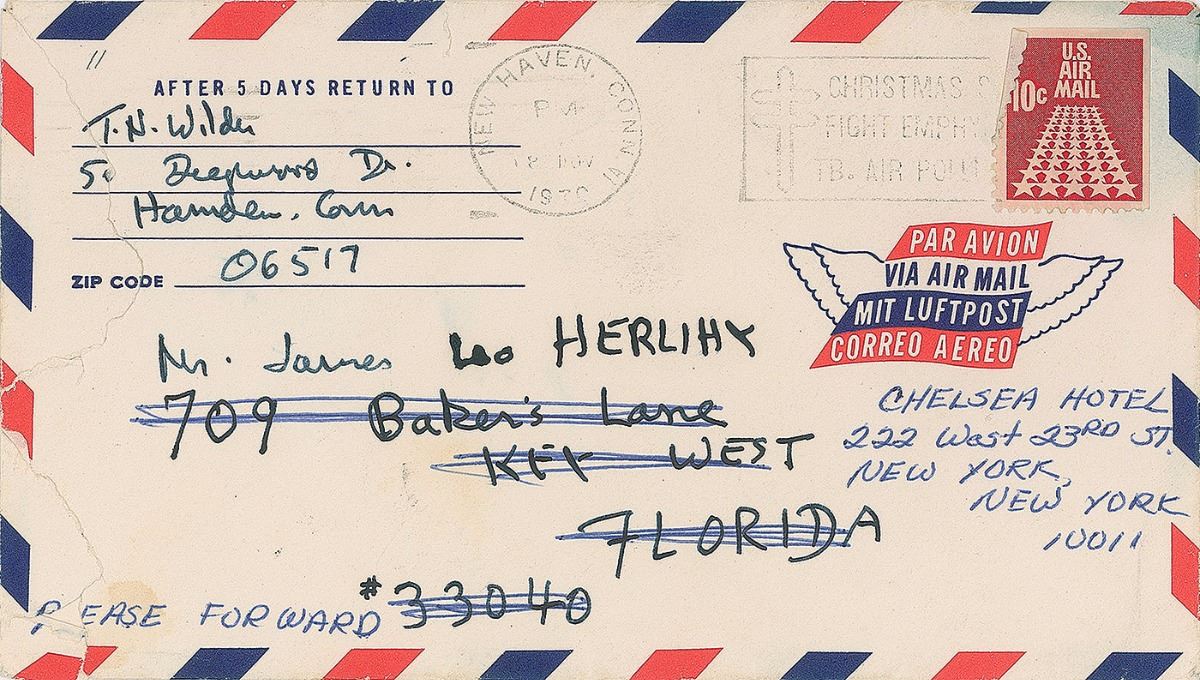 AFTER 5 DAYS RETURN TO
T.N. Wilder
50 Deepwood Dr.
Hamden, Conn
ZIP CODE 06517
NEW HAVEN, CONN
PM
18 NOV
1970
CHRISTMAS S
FIGHT EMPHY
TB. AIR POLLU
U.S.
AIR
MAIL
10c
PAR AVION
VIA AIR MAIL
MIT LUFTPOST
CORREO AEREO
Mr. James Leo HERLIHY
709 Baker's Lane
KEY WEST
FLORIDA
#33040
CHELSEA HOTEL
222 West 23RD ST.
NEW YORK,
NEW YORK
10011
PLEASE FORWARD